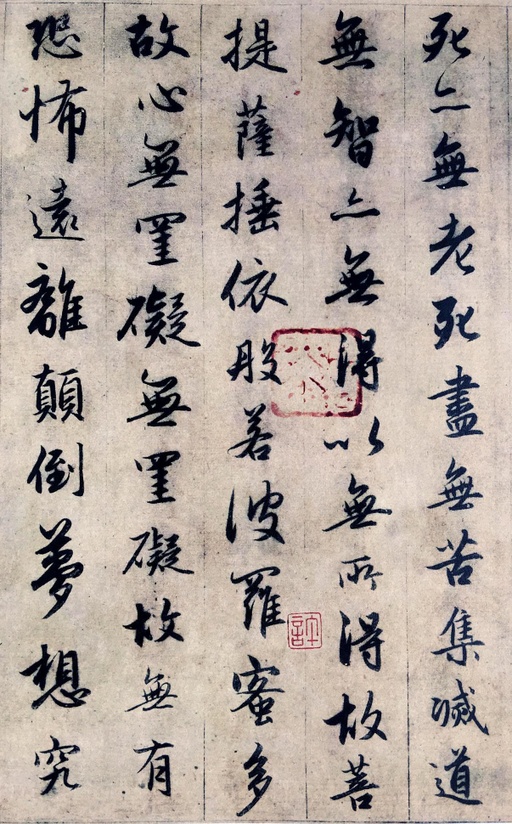 死亦無老死盡無苦集滅道
無智亦無得以無所得故菩
提薩埵依般若波羅蜜多
故心無罣礙無罣礙故無有
恐怖遠離顛倒夢想究